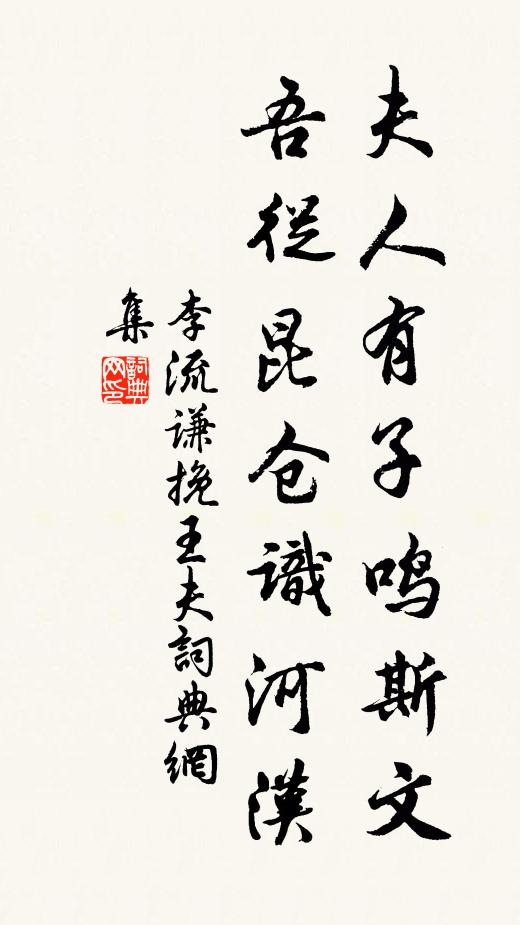 夫人有子鳴斯文
吾從昆仑識河漢
李流谦挽王夫詞典網
集
詞典
网印